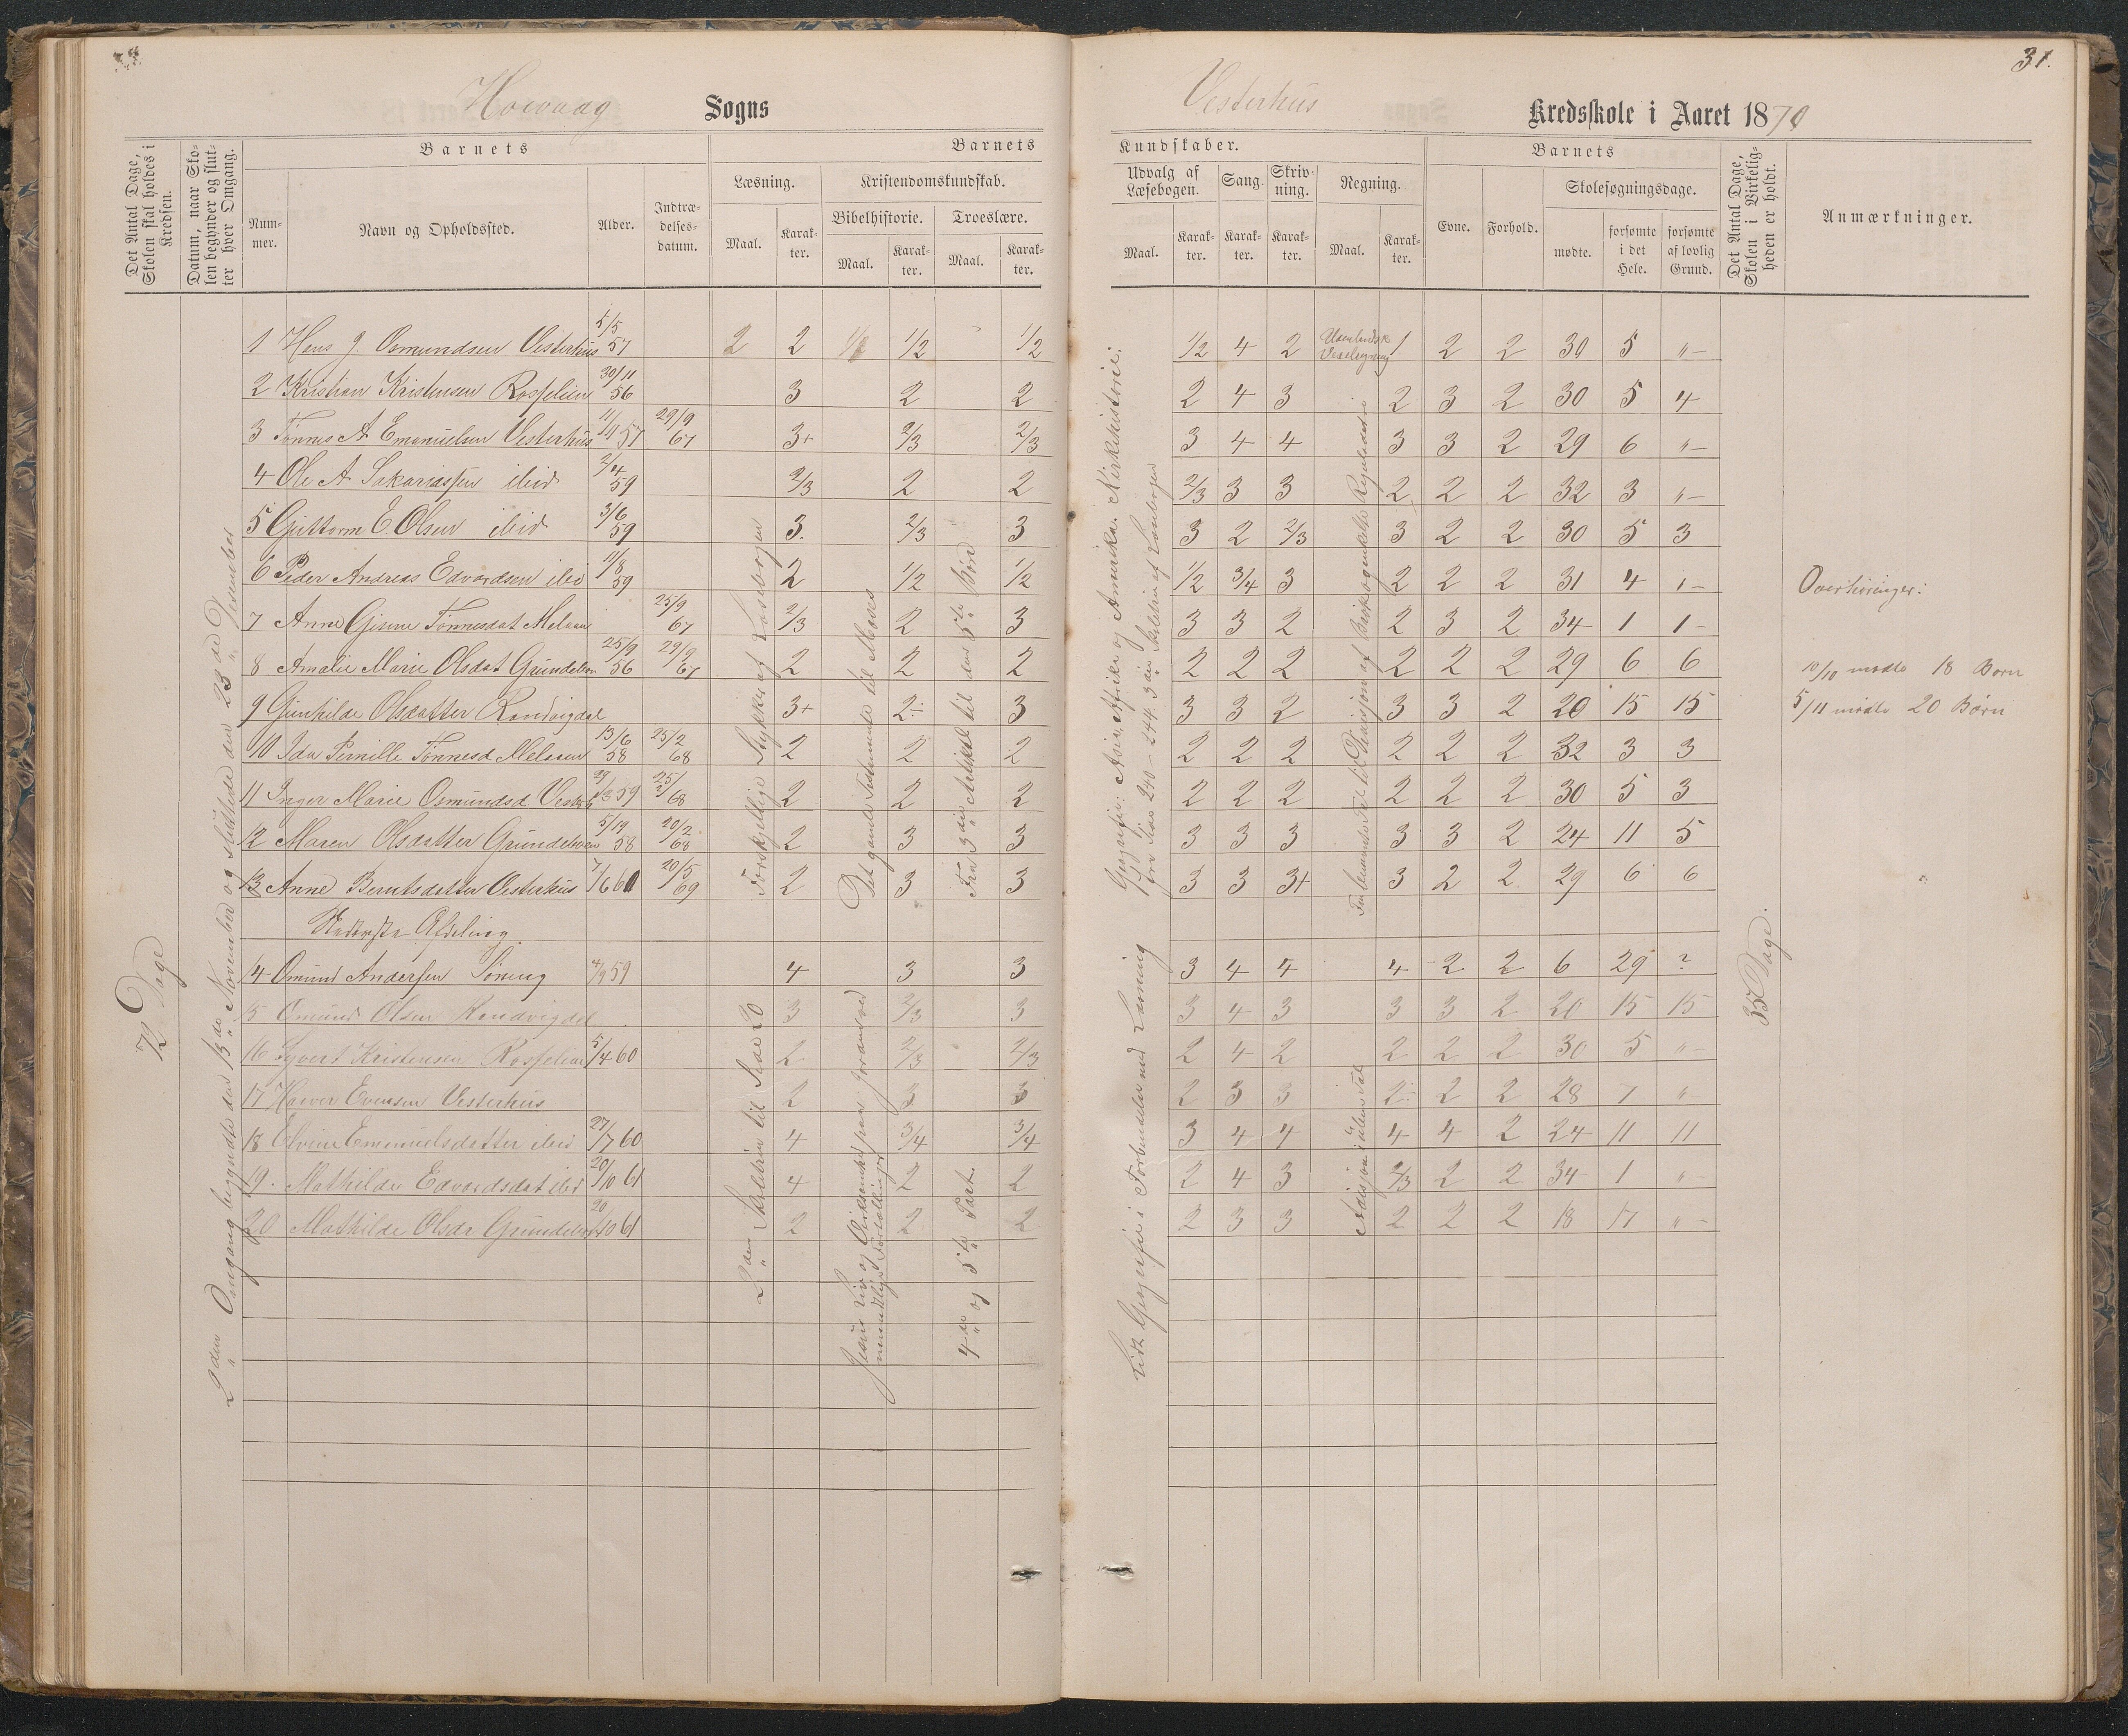 Hovaag Sogns
Vesterhus Kredsskole i Aaret 1870
31.
Det Antal Dage, Skolen skal holdes i Kredsen.
Datum, naar Skolen begynder og slutter hver Omgang.
Barnets
Nummer.
Navn og Opholdssted.
Alder.
Indtrædelsesdatum.
Barnets
Læsning.
Maal.
Karakter.
Kristendomskundskab.
Bibelhistorie.
Maal.
Karakter.
Troeslære.
Maal.
Karakter.
Kundskaber.
Udvalg af Læsebogen.
Maal.
Karakter.
Sang.
Karakter.
Skrivning.
Karakter.
Regning.
Maal.
Karakter.
Barnets
Evne.
Forhold.
Skolesøgningsdage.
mødte.
forsømte i det Hele.
forsømte af lovlig Grund.
Det Antal Dage, Skolen i Virkeligheden er holdt.
Anmærkninger.
72 Dage
2den Omgang begyndte den 13de November og sluttede den 23de Desember
1 Hans J. Osmundsen Vesterhus 5/5 57 2 2 1/2 1/2 1/2 1/2 4 2 1 2 2 30 5 "-
2 Kristian Kristensen Rosselien 30/11 56 3 2 2 2 4 3 2 3 2 30 5 4
3 Tønnes A Emanuelsen Vesterhus 11/11 57 29/9 67 3+ 2/3 2/3 3 4 4 3 3 2 29 6 "-
4 Ole A Sakariassen ibid 2/4 59 2/3 2 2 2/3 3 3 2 2 2 32 3 "-
5 Guttorm E. Olsen ibid 3/6 59 3. 2/3 3 3 2 2/3 3 2 2 30 5 3
6 Peder Andreas Edvardsen ibid 11/8 59 2 1/2 1/2 1/2 3/4 3 2 2 2 31 4 "-
7 Anne Gisene Tønnesdat Melaas 25/9 67 2/3 2 3 3 3 2 2 3 2 34 1 1-
8 Amalie Marie Olsdat Grundelsen 25/9 56 29/9 67 2 2 2 2 2 2 2 2 2 29 6 6
9 Gunhilde Olsdatter Randvigdal 3+ 2 3 3 3 2 3 3 2 20 15 15
10 Ida Pernille Tønnesd Melaaen 13/6 58 25/2 68 2 2 2 2 2 2 2 2 2 32 3 3
11 Inger Marie Osmundsd Vesterh 59 68 2 2 2 2 2 2 2 2 2 30 5 3
12 Maren Olsdatter Grundelsen 58 20/2 68 2 3 3 3 3 3 3 3 2 24 11 5
13 Anne Berntsdatter Vesterhus 7/6 60 20/5 69 2 3 3 3 3 3+ 3 2 2 29 6 6
Nederste Afdeling
14 Omund Andersen 4/9 59 4 3 3 3 4 4 4 2 2 6 29 ?
15 Omund Olsen Randvigdal 3 2/3 3 3 4 3 3 3 2 20 15 15
16 Syvert Kristensen Rosselien 5/4 60 2 2/3 2/3 2 4 2 2 2 2 30 5 "-
17 Haver Evensen Vesterhus 2 3 3 2 3 3 2 2 2 28 7 "
18 Elvine Emanuelsdatter ibid 27/7 60 4 3/4 3/4 3 4 4 4 4 2 24 11 11
19. Mathilde Edvardsdat ibid 20/10 61 4 2 2 2 4 3 2/3 2 2 34 1 "-
20 Mathilde Olsdr Grundelsen 20/10 61 2 2 2 2 3 3 2 2 2 18 17 "-
Forskjellige Stykker af Læsebogen
Det gamle Testamente til Moses
Fra 3die Artikel til den 5te Bøn
Geografi: Asia, Afrika og Amerika. Kirkehistorie:
2den Skoletrin til Side 20
4de og 5te Part.
Lidt Geografi i Forbindelse med Læsning
Addisjon i uben. Tal
35 Dage.
Overhøringer:
10/10 mødte 18 Børn
5/11 mødte 20 Børn